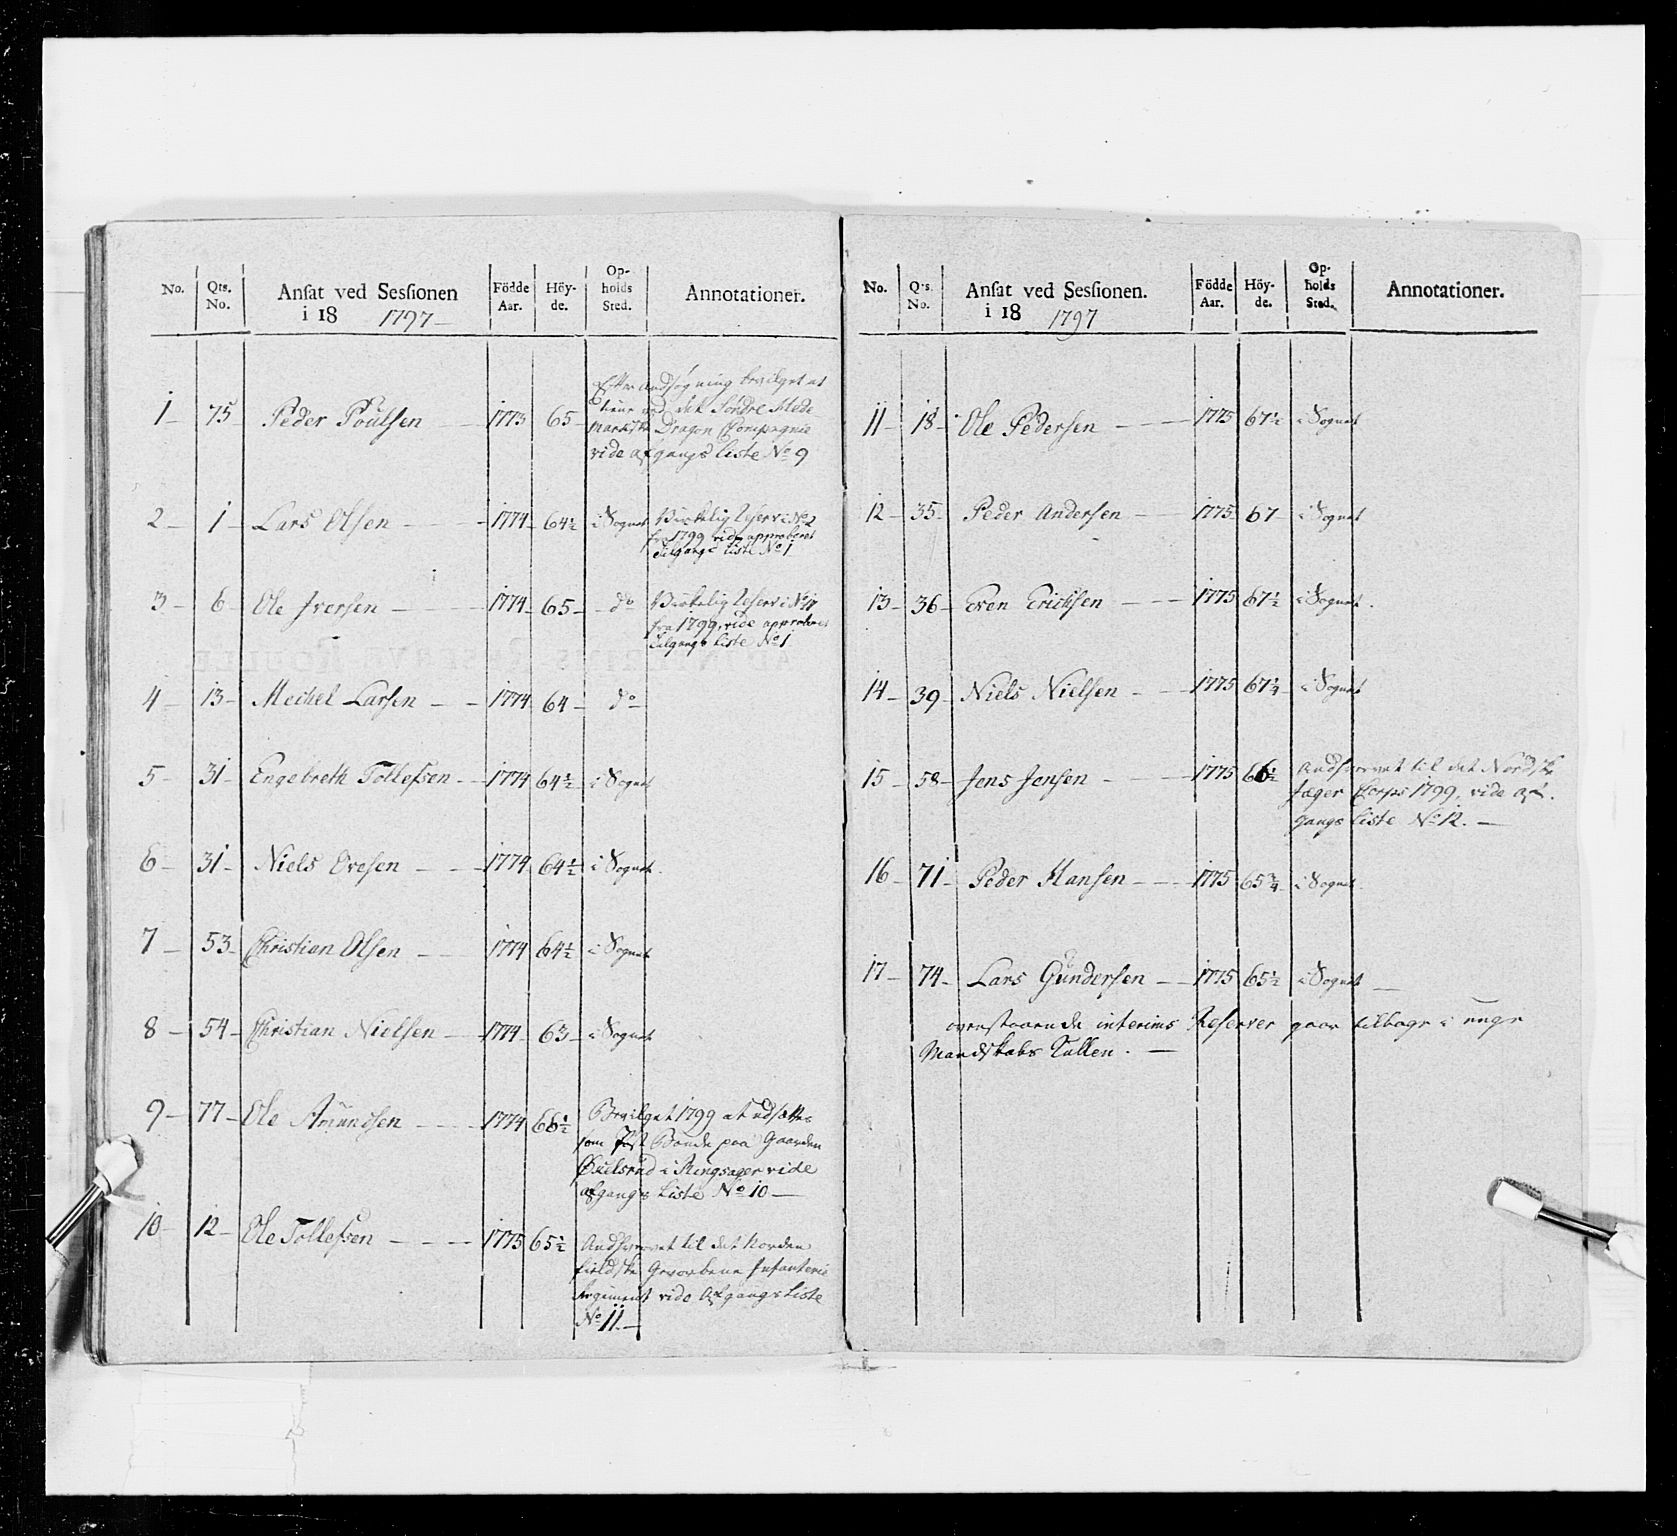 No. Qts. No. Ansat ved Sessionen i 18 1797 Födde Aar. Höy-de. Op-holds Sted. Annotationer.
1 75 Peder Poulsen 1773 65 Efter andsøgning bevilget at
tiene ved det Søndre Hede
markske Dragon Compagnie
vide afgangs liste No 9
2 1 Lars Olsen 1774 64½ i Sognet Virkelig Reserv: No 2
fra 1799 vide approberet
Tilgangs Liste No 1
3 6 Ole Iversen 1774 65 do Virkelig Reserv: No
fra 1799, vide approberet
Tilgangs Liste No 1
4 13 Meckel Larsen 1774 64 do
5 31 Engebreth Tollefsen 1774 64½ i Sognet
6 31 Niels Ovesen 1774 64½ i Sognet
7 53 Christian Olsen 1774 64½ i Sognet
8 54 Christian Nielsen 1774 63 i Sognet
9 77 Ole Amundsen 1774 66½ Bevilget 1799 at udsættes
som Post Bonde paa Gaarden
i Ringsager vide
afgangs Liste No 10
10 12 Ole Tollefsen 1775 65½ Andhvervet til det Norden
fieldske Gevorbene Infanterie
Regiment vide Afgangs Liste
No 11
No. Qts. No. Ansat ved Sessionen. i 18 1797 Födde Aar. Höy-de. Op-holds Sted. Annotationer.
11 18 Ole Pedersen 1775 67½ i Sognet
12 35 Peder Andersen 1775 67 i Sognet
13 36 Even Erichsen 1775 67½ i Sognet
14 39 Niels Nielsen 1775 67¼ i Sognet
15 58 Jens Jensen 1775 66½ Andhvervet til det Nordske
Jæger Corps 1799, vide af-
gangs Liste No 12.
16 71 Peder Hansen 1775 65¾ i Sognet
17 74 Lars Gundersen 1775 65½ i Sognet
ovenstaaende interims Reserver gaar tilbage i unge
Mandskabs Rullen.